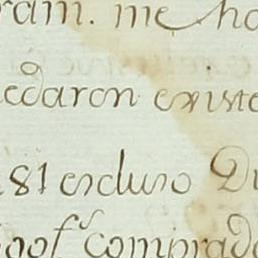 ram. me ho
edaron existe
81 excluso Du
goof^s comprad